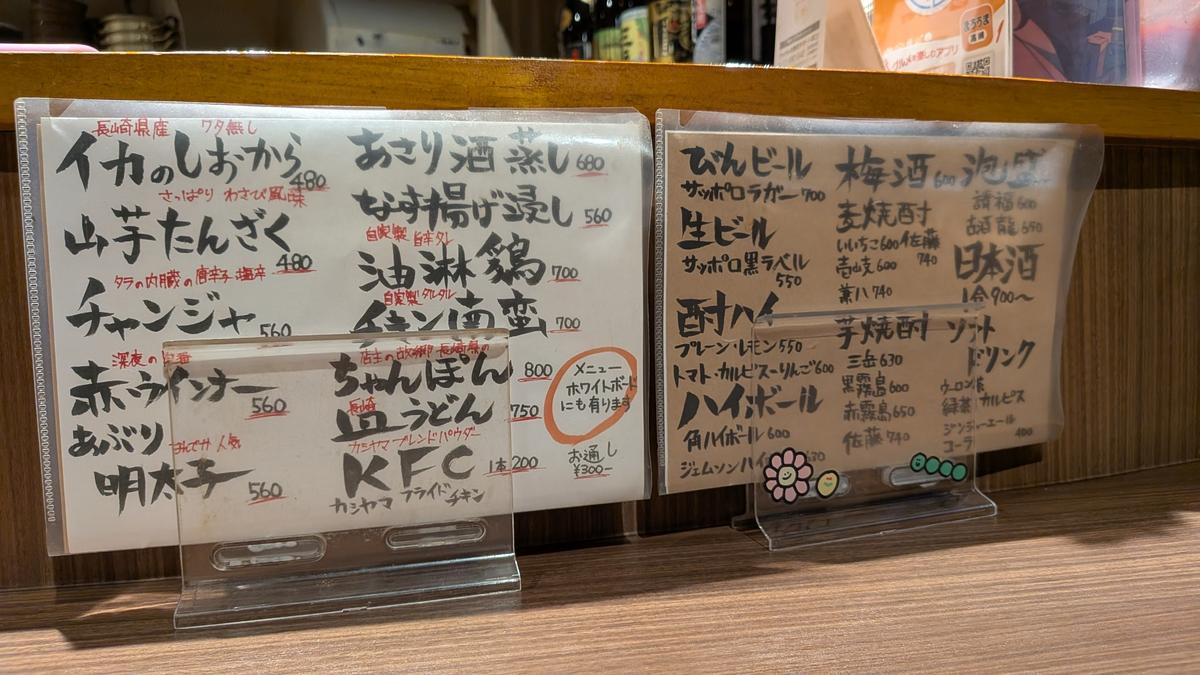 長崎県産 ワタ無し
イカのしおから 480
さっぱり わさび風味
山芋たんざく 480
タラの内臓の唐辛子塩辛
チャンジャ 560
深夜の定番
赤ウインナー 560
あぶり
みんな大人気
明太子 560
あさり酒蒸し 680
なす揚げ浸し 560
自家製 旨辛ダレ
油淋鶏 700
自家製タルタル
チキン南蛮 700
店主の故郷長崎県の
ちゃんぽん 800
長崎
皿うどん 750
カシヤマ ブレンドパウダー
KFC 1本200
カシヤマ フライドチキン
メニュー
ホワイトボード
にも有ります
お通し
¥300-
びんビール
サッポロラガー 700
生ビール
サッポロ黒ラベル
550
酎ハイ
プレーン・レモン 550
トマト・カルピス・りんご 600
ハイボール
角ハイボール 600
ジェムソンハイ 630
梅酒 600
麦焼酎
いいちこ 600 佐藤 740
壱岐 600
兼八 740
芋焼酎
三岳 630
黒霧島 600
赤霧島 650
佐藤 740
泡盛
請福 600
日本酒
1合 900〜
ソフト
ドリンク
ウーロン茶
緑茶 カルピス
ジンジャーエール
コーラ 400
グルメを楽しむアプリ